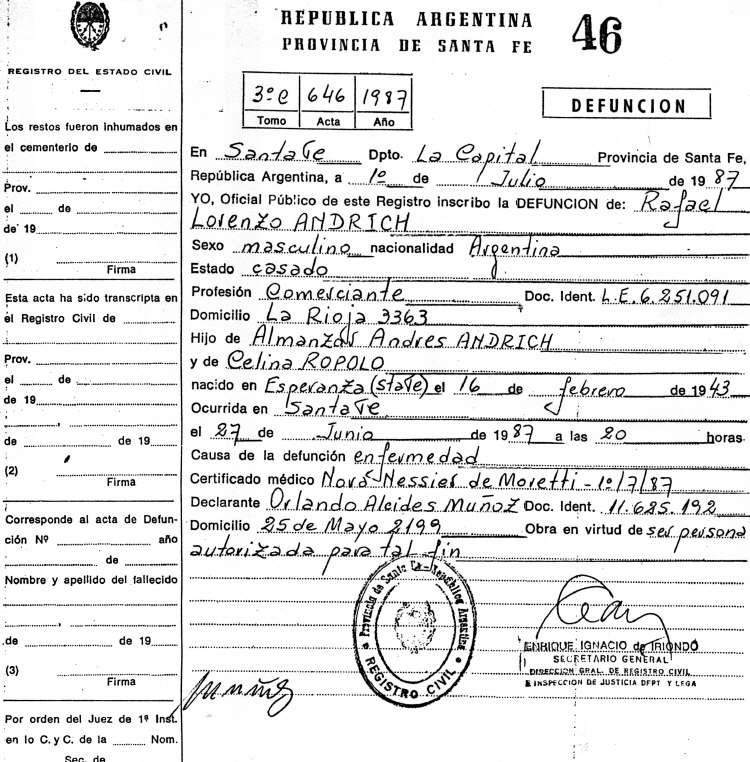 REGISTRO DEL ESTADO CIVIL
Los restos fueron inhumados en
el cementerio de
Prov.
el de
de 19
(1)
Firma
Esta acta ha sido transcripta en
el Registro Civil de
Prov.
el de
de 19
de de 19
(2)
Firma
Corresponde al acta de Defun-
ción Nº año
de
Nombre y apellido del fallecido
de de 19
(3)
Firma
Por orden del Juez de 1ª Inst.
en lo C. y C. de la Nom.
Sec. de
REPUBLICA ARGENTINA
PROVINCIA DE SANTA FE
46
3º C 646 1987
Tomo Acta Año
DEFUNCION
En Santa Fe Dpto. La Capital Provincia de Santa Fe,
República Argentina, a 1º de Julio de 1987
YO, Oficial Público de este Registro inscribo la DEFUNCION de: Rafael
Lorenzo ANDRICH
Sexo masculino nacionalidad Argentina
Estado casado
Profesión Comerciante Doc. Ident. L.E. 6.251.091
Domicilio La Rioja 3363
Hijo de Almanzor Andres ANDRICH
y de Celina ROPOLO
nacido en Esperanza (staFe) el 16 de febrero de 1943
Ocurrida en Santa Fe
el 27 de Junio de 1987 a las 20 horas
Causa de la defunción enfermedad
Certificado médico Nora Nessier de Moretti - 1º/7/87
Declarante Orlando Alcides Muñoz Doc. Ident. 11.625.192
Domicilio 25 de Mayo 2199 Obra en virtud de ser persona
autorizada para tal fin
Provincia de Santa Fe - República Argentina
REGISTRO CIVIL
ENRIQUE IGNACIO de IRIONDO
SECRETARIO GENERAL
DIRECCION GRAL. DE REGISTRO CIVIL
E INSPECCION DE JUSTICIA DEPT Y LEGA